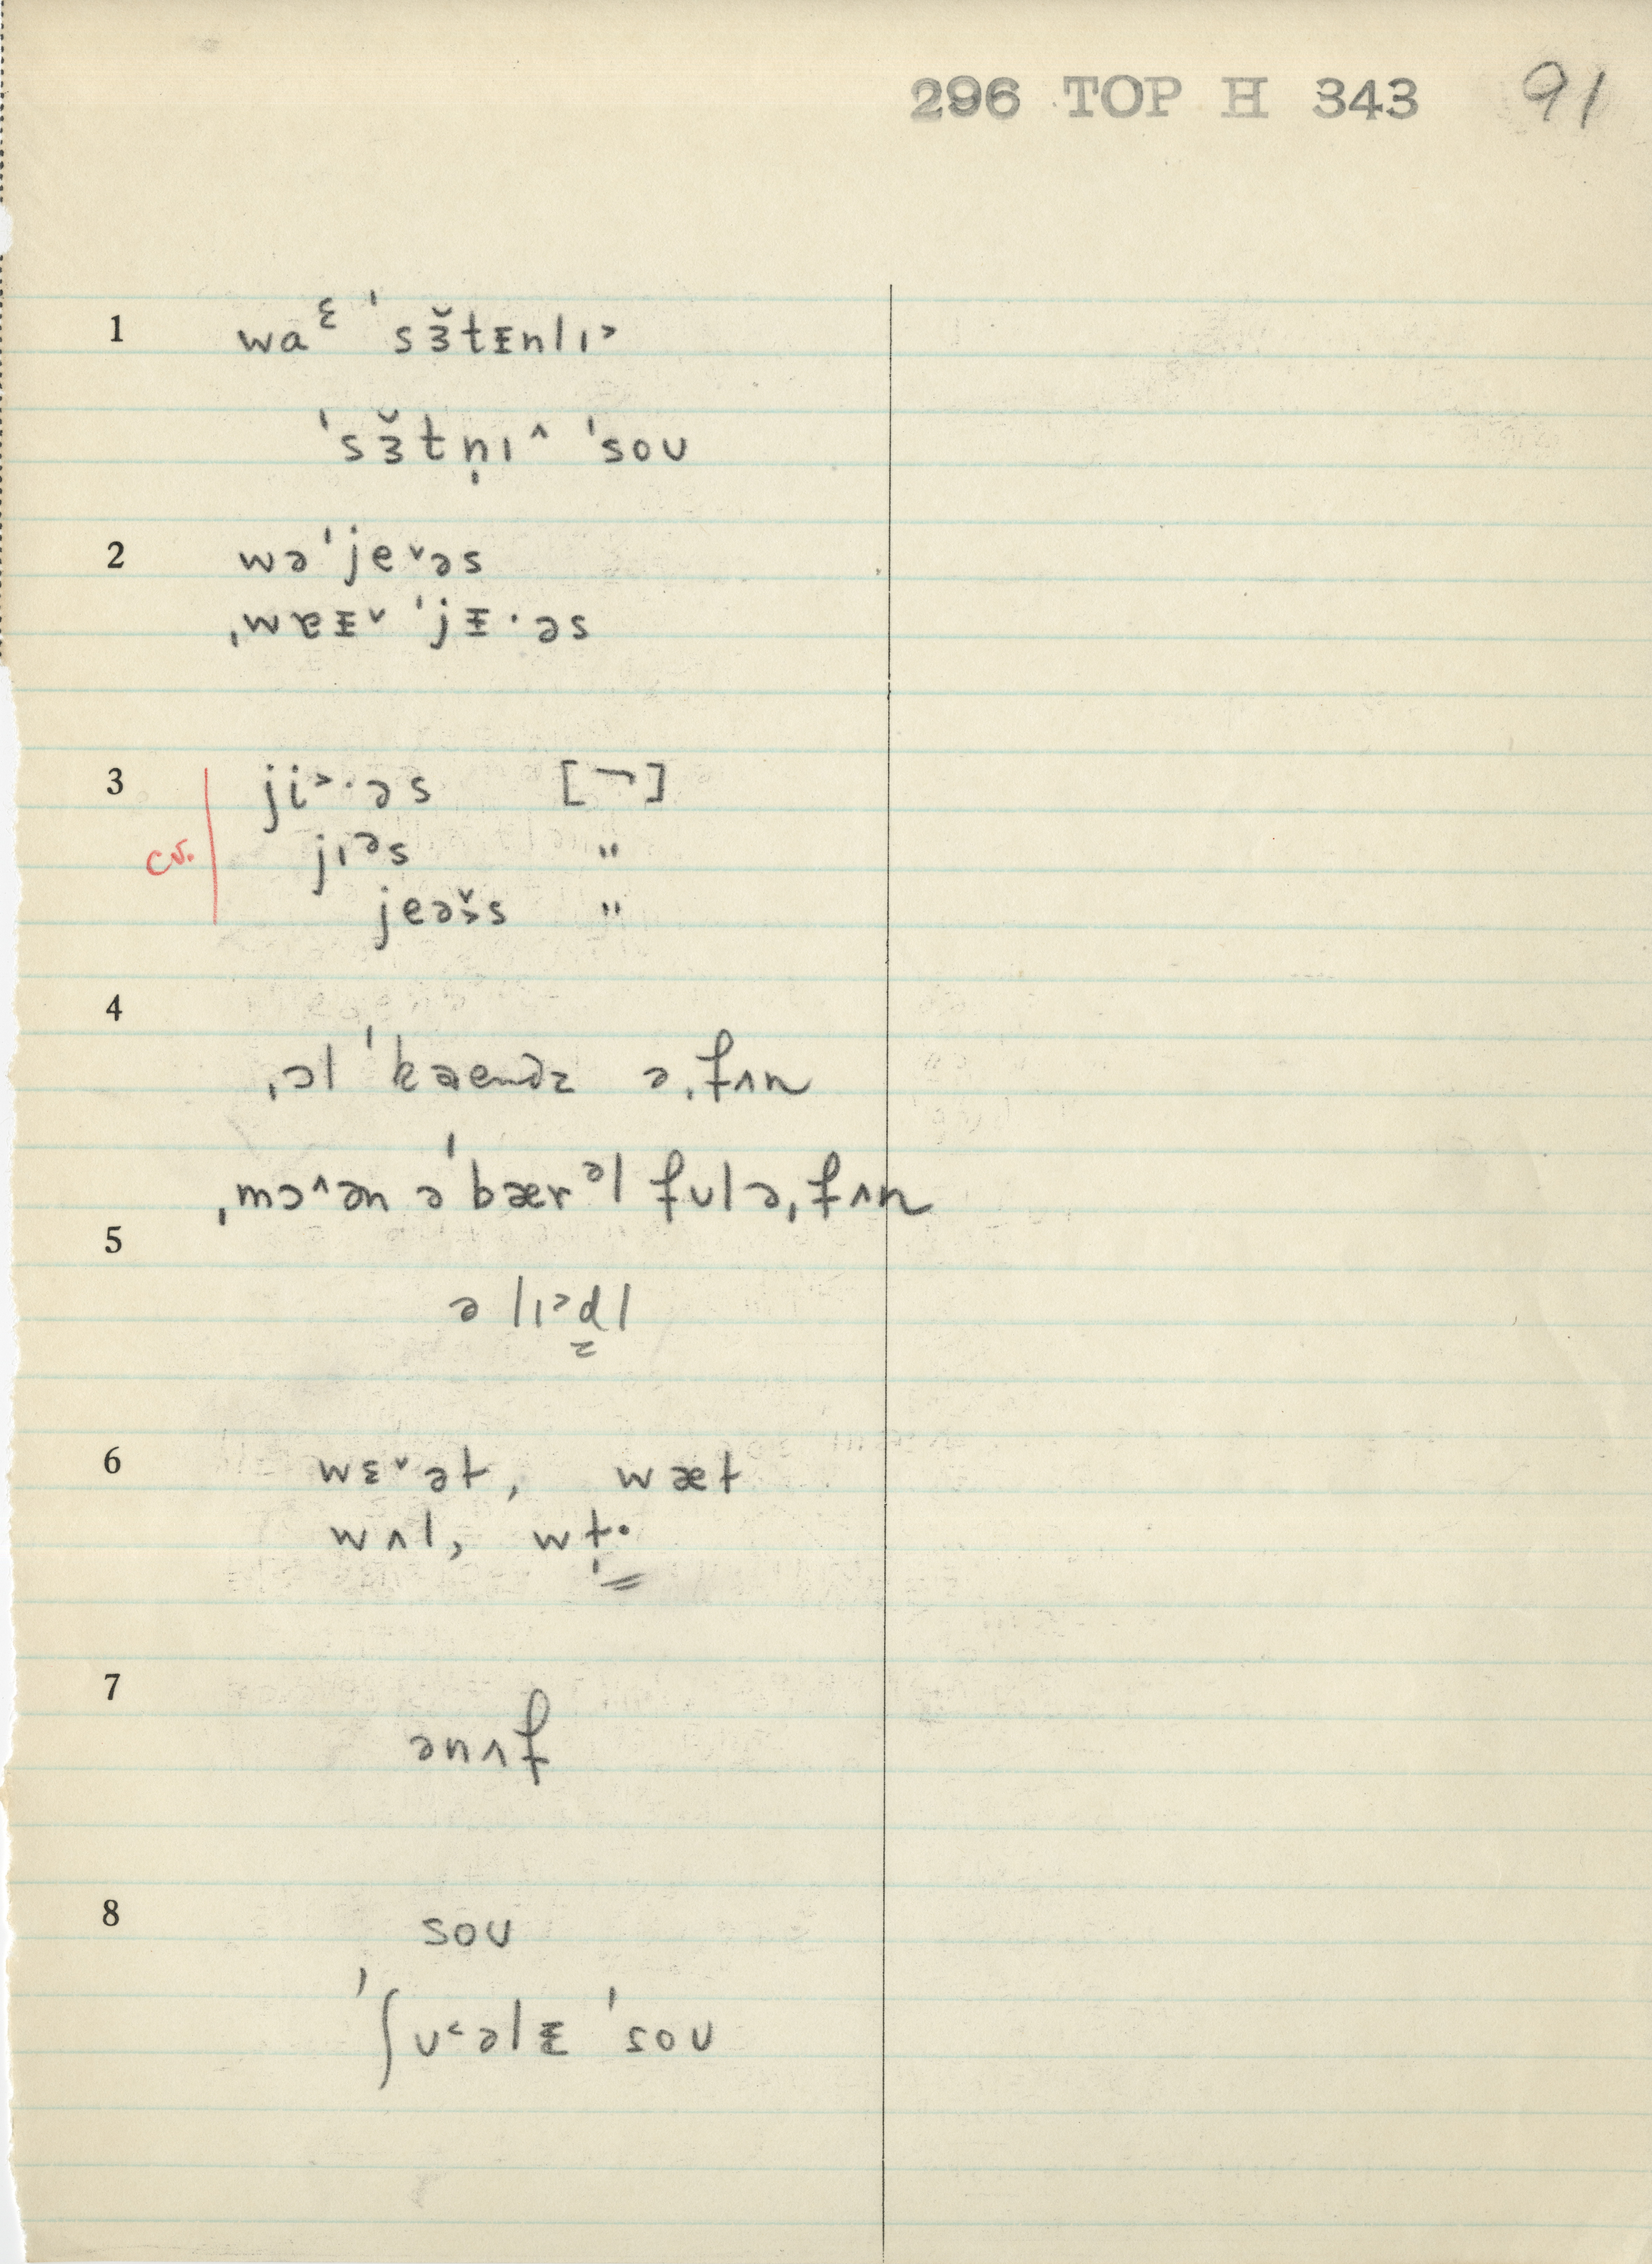 296 TOP H 343 91
1 wa ͛ ˈsɜ̆tɪnlɪ˃
ˈsɜ̆tn̩ɪ^ ˈsoʊ
2 wəˈje˅əs
ˌwɐɪ˅ ˈjɪ·əs
3 ji˃·əs [¬]
cv. jɪᵊs "
jeə̆˃s "
4
ˌɔl ˈkaendz əˌfʌn
ˌmɔ^ən əˈbærᵊl fʊl əˌfʌn
5
ə lɪ˃dl
6 wɛ˅ət, wæt
wʌl, wl̩·
7
ənʌf
8 soʊ
ˈʃʊ˂əlɪ ˈsoʊ